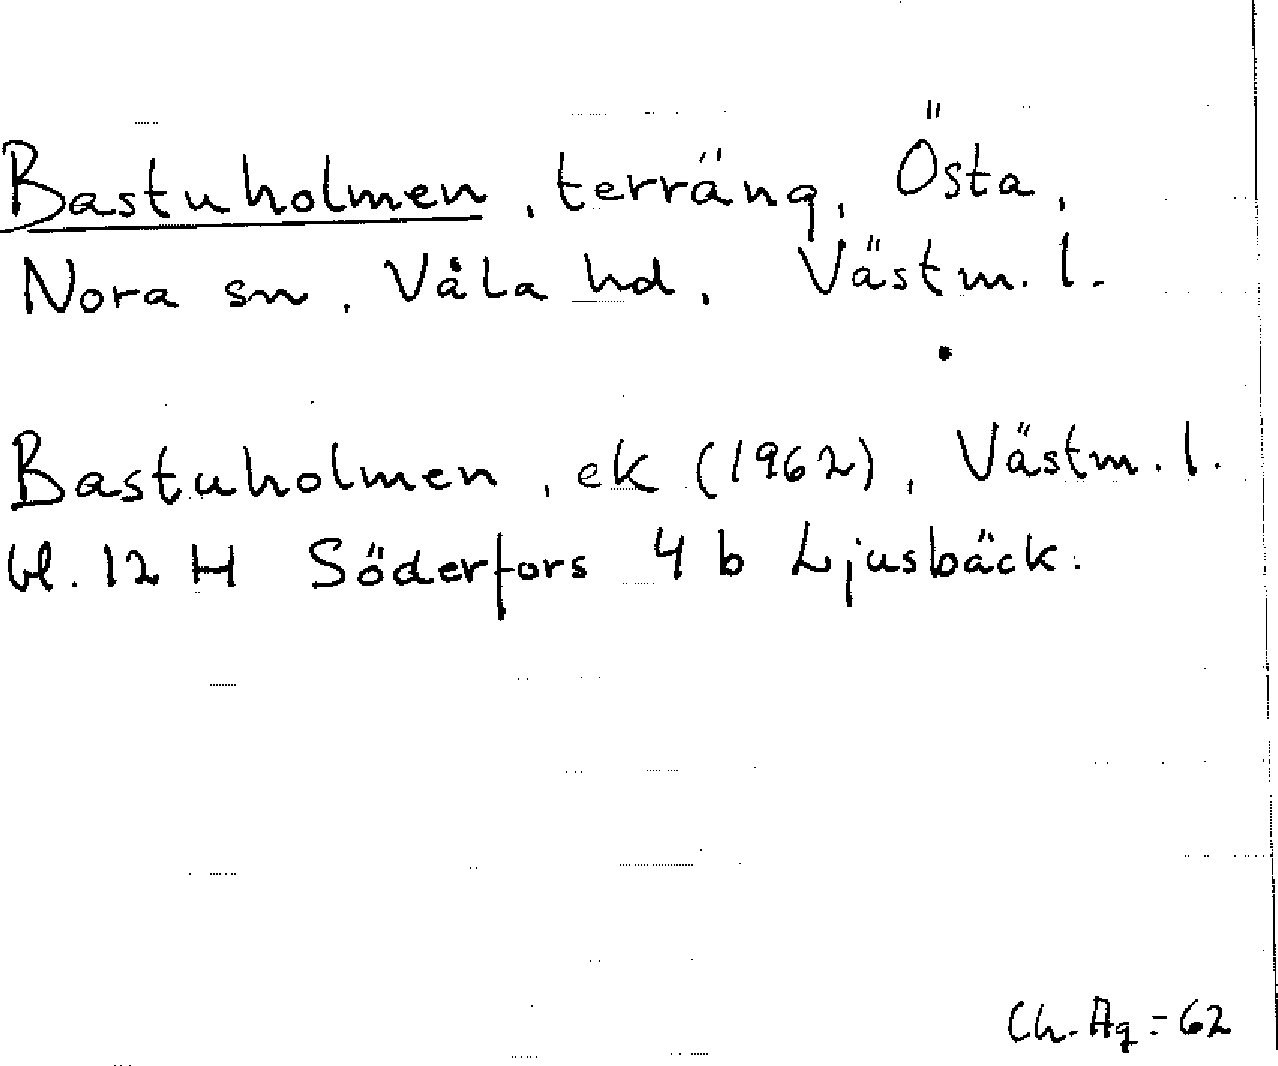 Bastuholmen, terräng, Östa,
Nora sn, Våla hd, Västm. l.
Bastuholmen, ek (1962), Västm. l.
bl. 12 H Söderfors 4 b Ljusbäck.
Ch. Ag-62